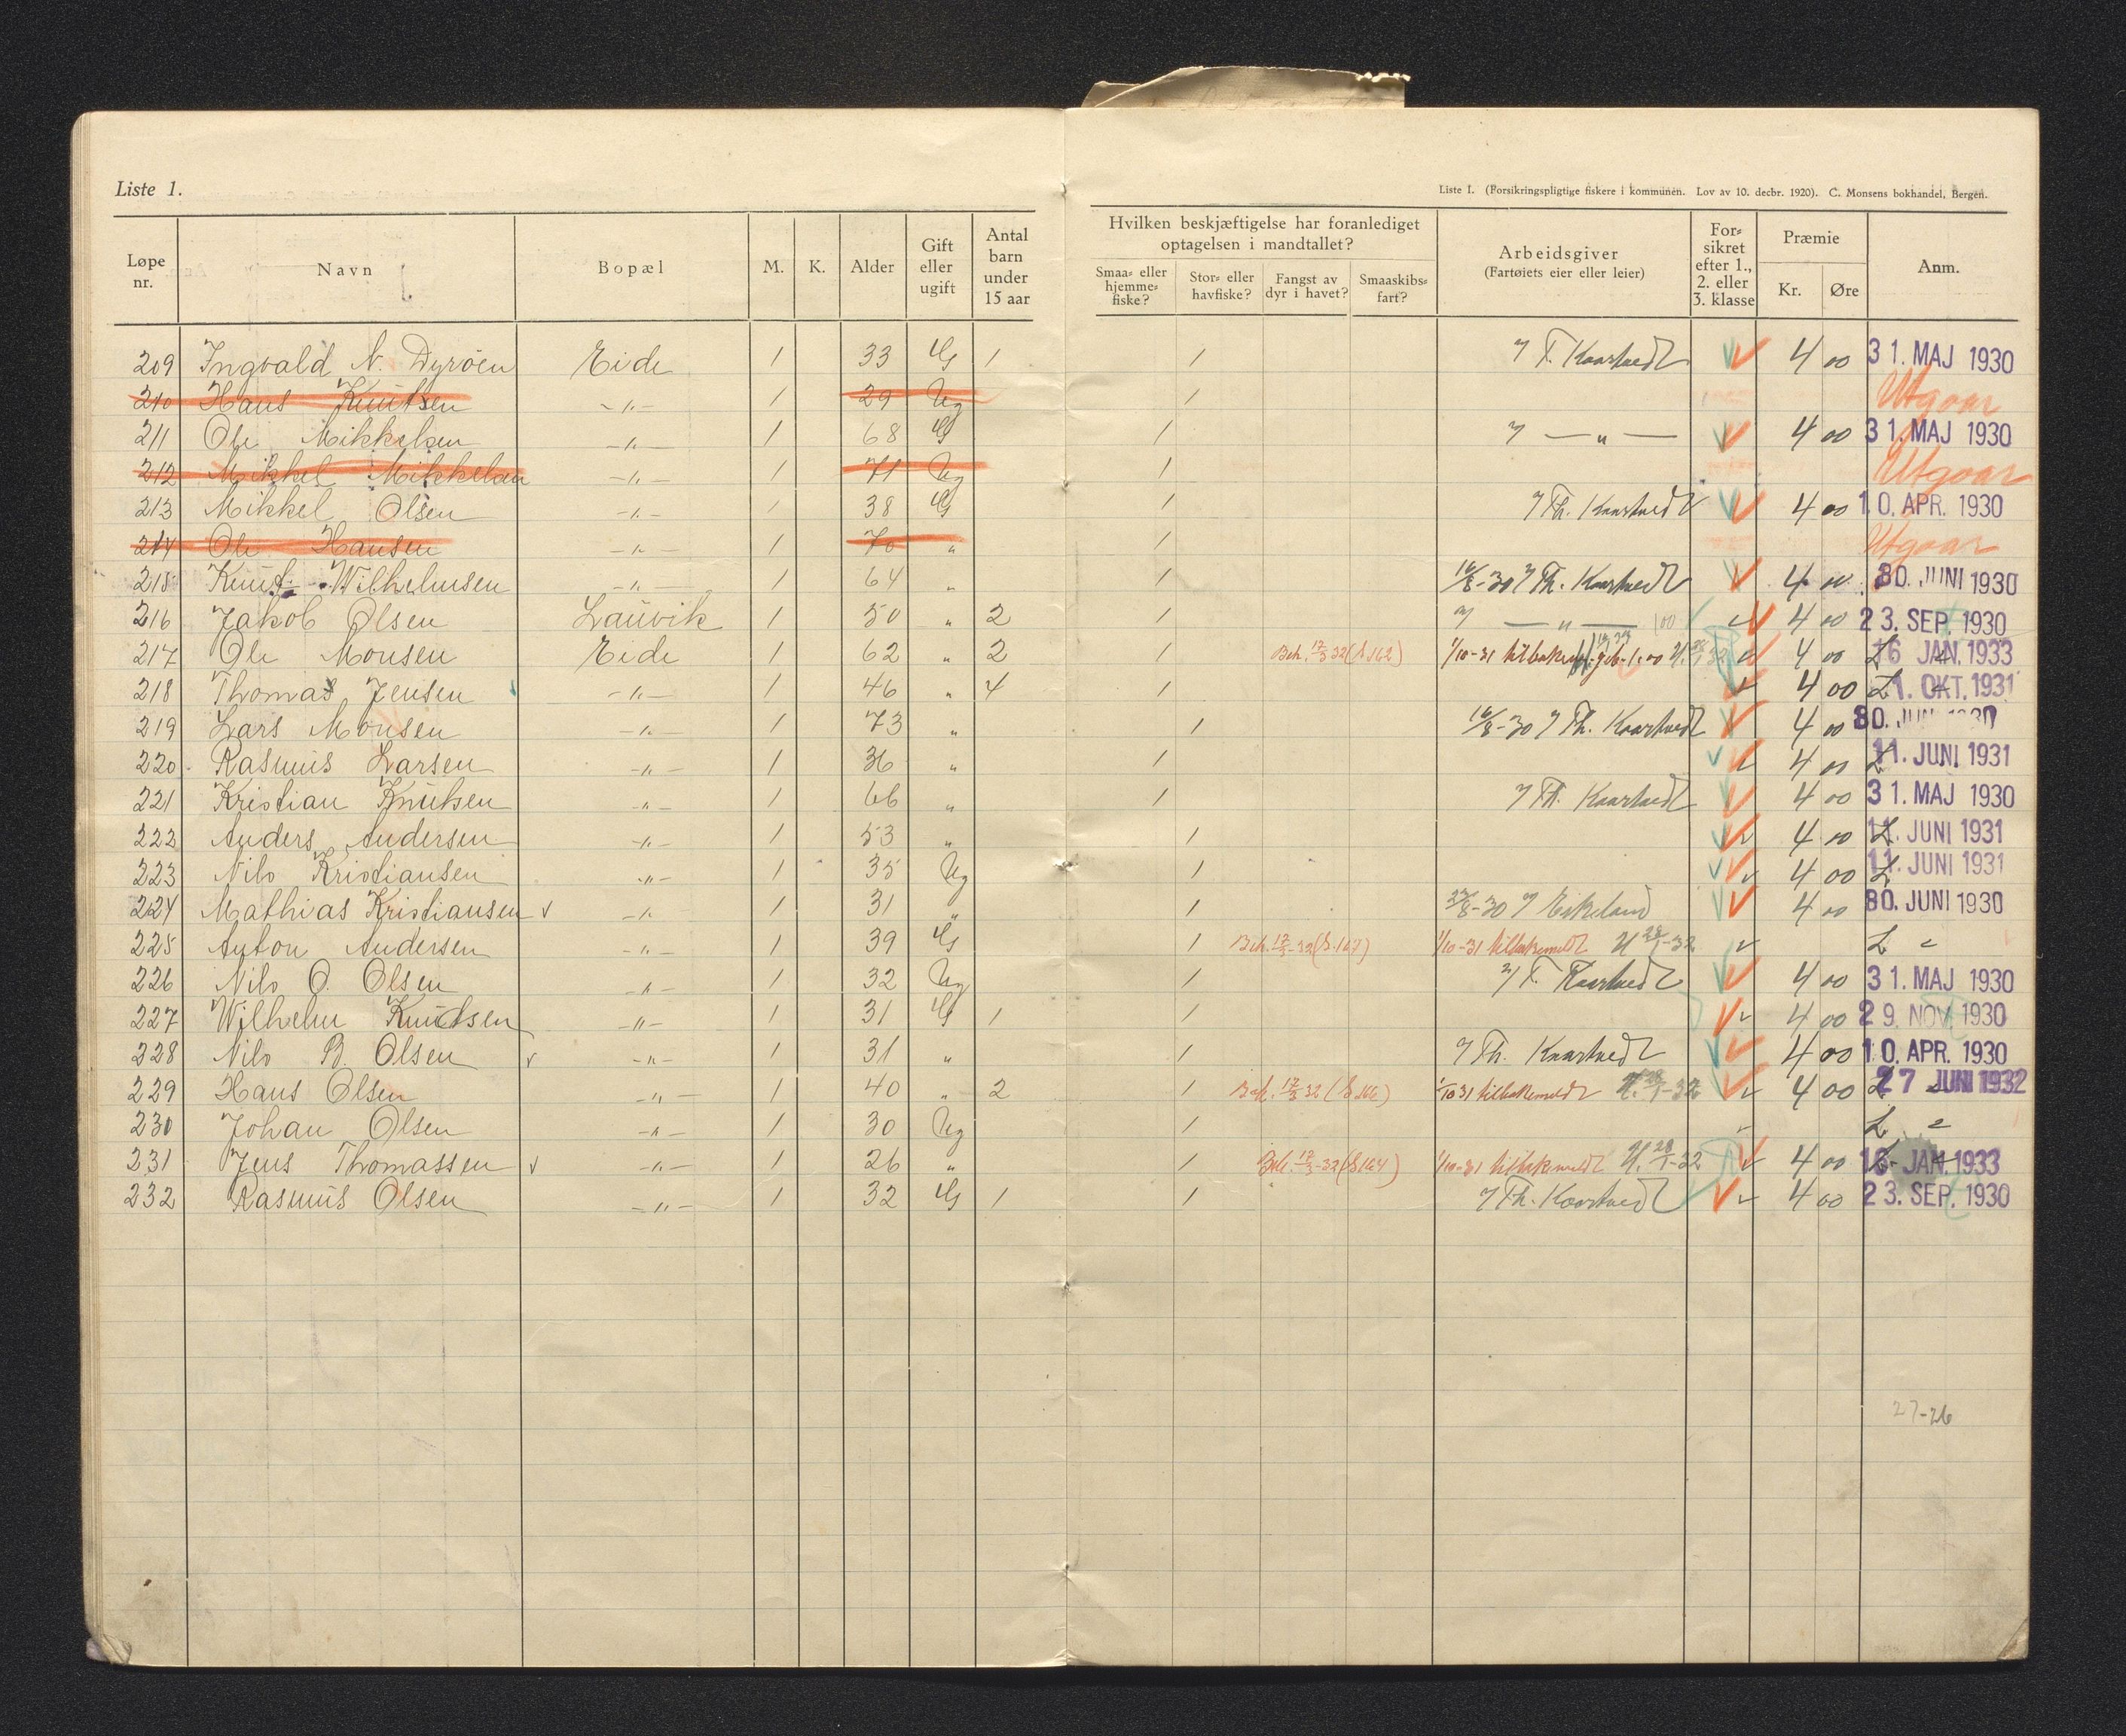 Liste 1.
Liste I. (Forsikringspligtige fiskere i kommunen. Lov av 10. decbr. 1920). C. Monsens bokhandel, Bergen.
Løpe nr. Navn Bopæl M. K. Alder Gift eller ugift Antal barn under 15 aar Hvilken beskjæftigelse har foranlediget optagelsen i mandtallet? Smaa= eller hjemme= fiske? Stor= eller havfiske? Fangst av dyr i havet? Smaaskibs= fart? Arbeidsgiver (Fartøiets eier eller leier) For= sikret efter 1., 2. eller 3. klasse Præmie Kr. Øre Anm.
209 Ingvald N. Dyröen Eide 1 33 G 1 1 T. Kaartvedt 4 00 31. MAJ 1930
210 Hans Knutsen -"- 1 29 Ug 1 Utgaar
211 Ole Mikkelsen -"- 1 68 G 1 — " — 4 00 31. MAJ 1930
212 Mikkel Mikkelsen -"- 1 71 Ug 1 Utgaar
213 Mikkel Olsen -"- 1 38 G 1 Th. Kaartvedt 4 00 10. APR. 1930
214 Ole Hansen -"- 1 70 " 1 Utgaar
215 Knut Wilhelmsen -"- 1 64 " 1 16/8-30 Th. Kaartvedt 4 00 30. JUNI 1930
216 Jakob Olsen Lauvik 1 50 " 2 1 — " — 100 4 00 23. SEP. 1930
217 Ole Monsen Eide 1 62 " 2 1 Beh. 17/3 32 (S 162) 1/10-31 4 00 L 16 JAN. 1933
218 Thomas Jensen -"- 1 46 " 4 1 4 00 L 1. OKT. 1931
219 Lars Monsen -"- 1 73 " 1 16/8-30 Th. Kaartvedt 4 00 30. JUNI 1930
220 Rasmus Larsen -"- 1 36 " 1 4 00 L 11. JUNI 1931
221 Kristian Knutsen -"- 1 66 " 1 Th. Kaartvedt 4 00 31. MAJ 1930
222 Anders Andersen -"- 1 53 " 1 4 00 L 11. JUNI 1931
223 Nils Kristiansen -"- 1 35 Ug 1 4 00 L 11. JUNI 1931
224 Mathias Kristiansen -"- 1 31 " 1 22/8-30 Eikeland 4 00 30. JUNI 1930
225 Anton Andersen -"- 1 39 G 1 Beh. 17/3-32 (S. 167) 1/10-31 tilbakemeldt U 28/1-32 L
226 Nils O. Olsen -"- 1 32 Ug 1 T. Kaartvedt 4 00 31. MAJ 1930
227 Wilhelm Knutsen -"- 1 31 G 1 1 4 00 29. NOV. 1930
228 Nils B. Olsen -"- 1 31 " 1 Th. Kaartvedt 4 00 10. APR. 1930
229 Hans Olsen -"- 1 40 " 2 1 Beh. 17/3 32 (S 166) 1/10 31 tilbakemeldt U. 28/1-32 4 00 L 27 JUNI 1932
230 Johan Olsen -"- 1 30 Ug 1 L
231 Jens Thomassen -"- 1 26 " 1 Beh. 17/3-32 (S 164) 1/10-31 tilbakemeldt U. 28/1-32 4 00 16 JAN. 1933
232 Rasmus Olsen -"- 1 32 G 1 1 Th. Kaartvedt 4 00 23. SEP. 1930
27-26